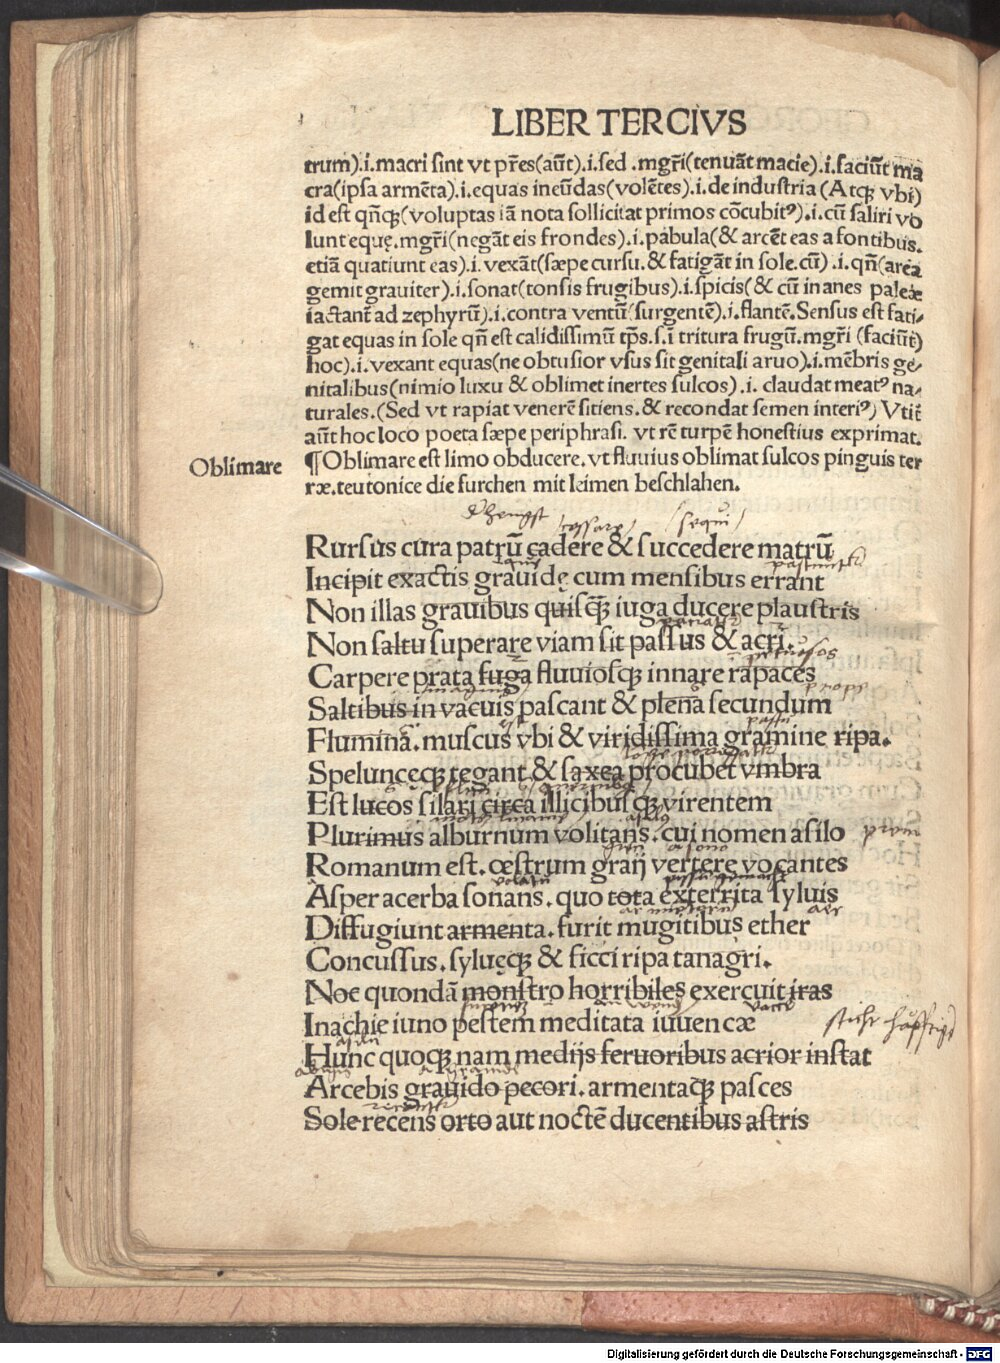 LIBER TERCIVS
trum).i.macri sint vt p̄res(aūt).i.sed .mgr̄i(tenuāt macie).i.faciūt ma
cra(ipsa armēta).i.equas ineūdas(volētes).i.de industria (Atqꝫ vbi)
id est qn̄cqꝫ(voluptas iā nota sollicitat primos cōcubitꝰ).i.cū saliri vo
lunt equę.mgr̄i(negāt eis frondes).i.pabula(& arcēt eas a fontibus.
etiā quatiunt eas).i.vexāt(sæpe cursu.& fatigāt in sole.cū) .i.qn̄(area
gemit grauiter).i.sonat(tonsis frugibus).i.spicis(& cū inanes paleæ
iactant̄ ad zephyrū).i.contra ventū(surgentē).i.flantē.Sensus est fati-
gat equas in sole qn̄ est calidissimū tp̄s.s.ī tritura frugū.mgr̄i (faciūt)
hoc).i.vexant equas(ne obtusior vsus sit genitali aruo).i.mēbris ge-
nitalibus(nimio luxu & oblimet inertes sulcos).i. claudat meatꝰ na-
turales.(Sed vt rapiat venerē sitiens.& recondat semen interiꝰ) Vtit̄
aūt hoc loco poeta sæpe periphrasi. vt rē turpē honestius exprimat.
Oblimare
¶Oblimare est limo obducere.vt fluuius oblimat sulcos pinguis ter
ræ.teutonice die furchen mit leimen beschlahen.
Rursus cura patrū cadere & succedere matrū
Incipit exactis grauidę cum mensibus errant
Non illas grauibus quisq̄ꝫ iuga ducere plaustris
Non saltu superare viam sit passus & acri.
Carpere prata fuga fluuiosqꝫ innare rapaces
propp
Saltibus in vacuis pascant & plena secundum
Flumina. muscus vbi & viridissima gramine ripa.
Speluncęqꝫ tegant & saxea procubet vmbra
Est lucos silari circa illicibusqꝫ virentem
Plurimus alburnum volitans. cui nomen asilo
a sono
Romanum est. œstrum graij vertere vocantes
Asper acerba sonans. quo tota exterrita syluis
aer
Diffugiunt armenta. furit mugitibus ether
Concussus. syluęqꝫ & sicci ripa tanagri.
Noc quondā monstro horribiles exercuit iras
Inachie iuno pestem meditata iuuencæ
Hunc quoqꝫ nam medijs feruoribus acrior instat
Arcebis grauido pecori. armentaqꝫ pasces
Sole recens orto aut noctē ducentibus astris
Digitalisierung gefördert durch die Deutsche Forschungsgemeinschaft - DFG